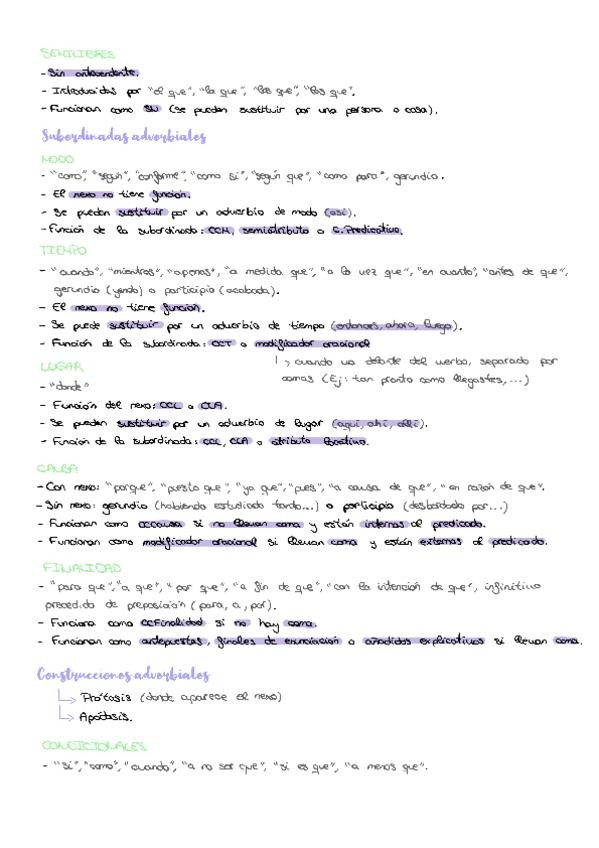 SEMILIBRES
- Sin antecedente.
- Introducidas por "el que", "la que", "los que", "las que".
- Funcionan como SN (se pueden sustituir por una persona o cosa).
Subordinadas adverbiales
MODO
- "como", "según", "conforme", "como si", "según que", "como para", gerundio.
- El nexo no tiene función.
- Se pueden sustituir por un adverbio de modo (así).
- Función de la subordinada: CCM, semiatributo o C.Predicativo.
TIEMPO
- "cuando", "mientras", "apenas", "a medida que", "a la vez que", "en cuanto", "antes de que",
gerundio (yendo) o participio (acabada).
- El nexo no tiene función.
- Se puede sustituir por un adverbio de tiempo (entonces, ahora, luego).
- Función de la subordinada: CCT o modificador oracional
↳ cuando va delante del verbo, separado por
comas (Ej: tan pronto como llegastes, ...)
LUGAR
- "donde"
- Función del nexo: CCL o CLA.
- Se pueden sustituir por un adverbio de lugar (aquí, ahí, allí).
- Función de la subordinada: CCL, CLA o atributo locativo.
CAUSA
- Con nexo: "porque", "puesto que", "ya que", "pues", "a causa de que", "en razón de que".
- Sin nexo: gerundio (habiendo estudiado tanto...) o participio (desbordado por...)
- Funcionan como CCCausa si no llevan coma y están internas al predicado.
- Funcionan como modificador oracional si llevan coma y están externas al predicado.
FINALIDAD
- "para que", "a que", "por que", "a fin de que", "con la intención de que", infinitivo
precedido de preposición (para, a, por).
- Funciona como CCFinalidad si no hay coma.
- Funcionan como antepuestas, finales de enunciación o añadidos explicativos si llevan coma.
Construcciones adverbiales
↳ Prótasis (donde aparece el nexo)
↳ Apódosis.
CONDICIONALES
- "Si", "como", "cuando", "a no ser que", "si es que", "a menos que".